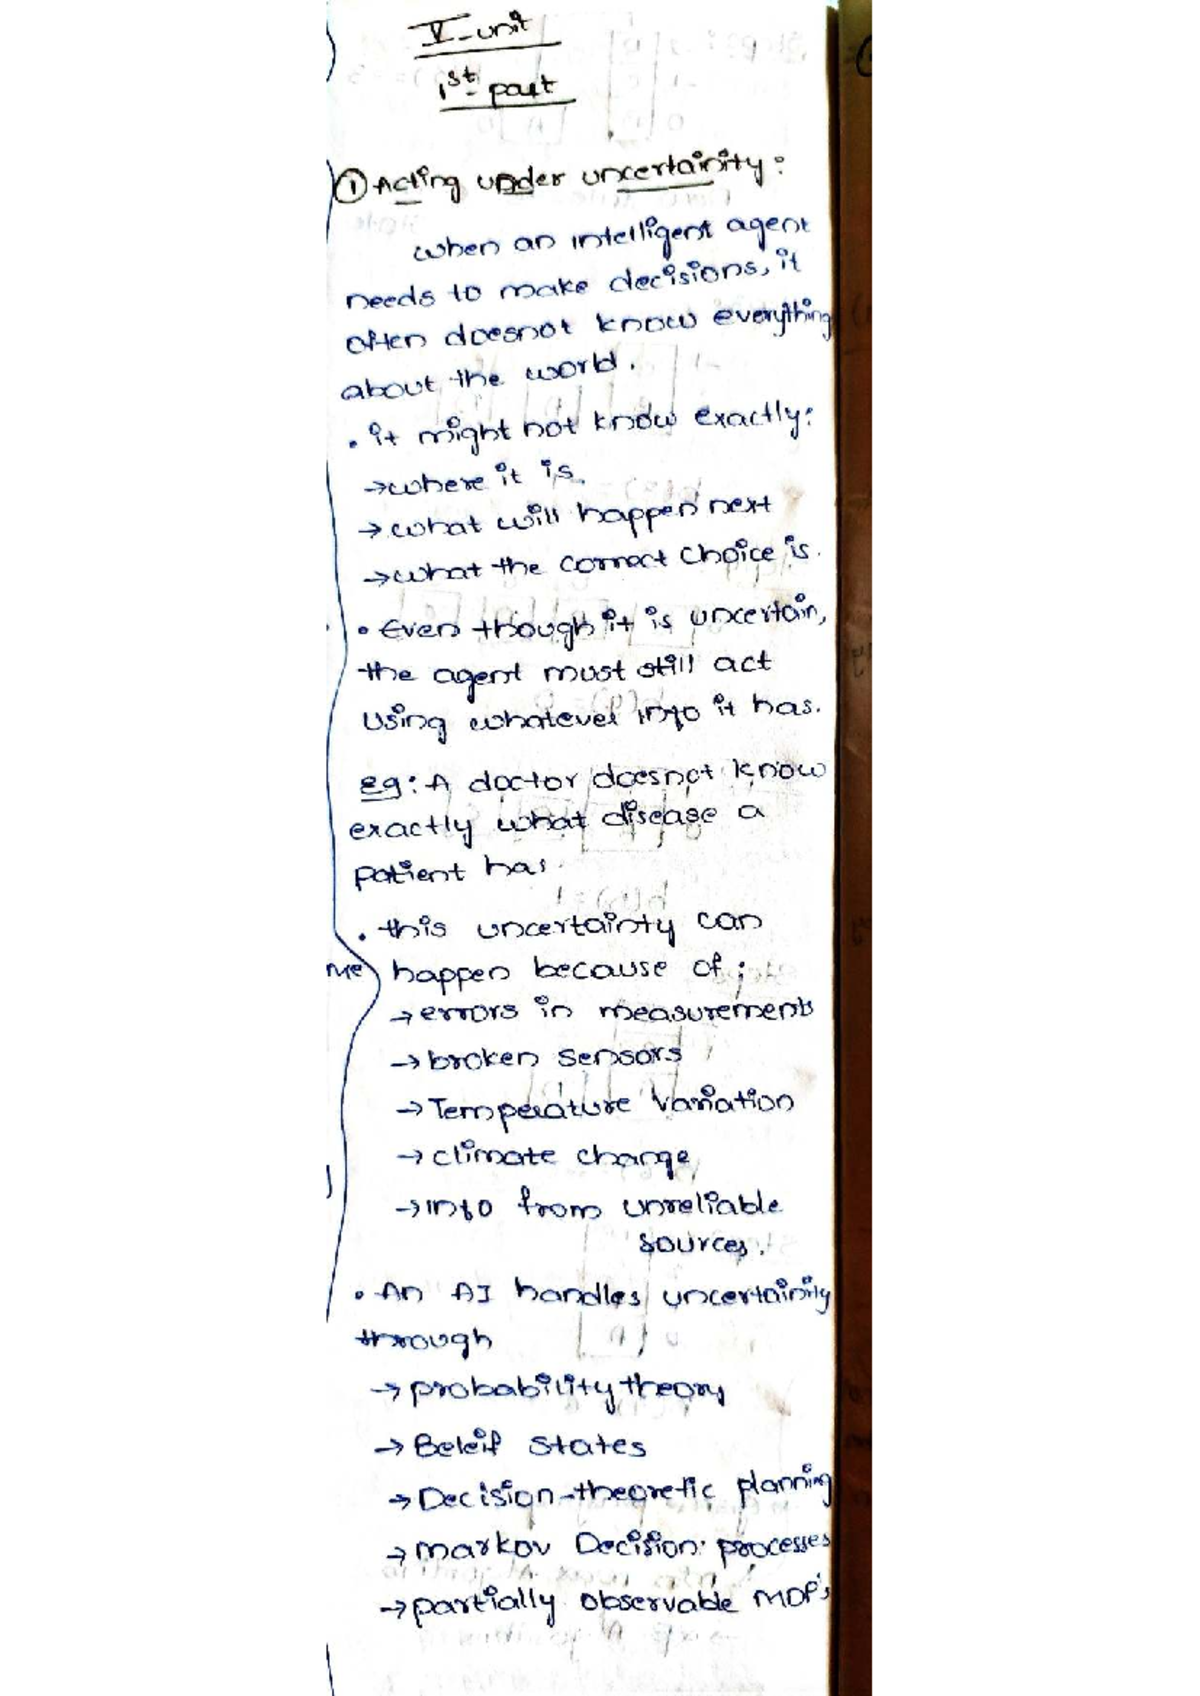 V-unit
1st part
① Acting under uncertainity:
when an intelligent agent
needs to make decisions, it
often doesnot know everything
about the world.
• it might not know exactly:
→ where it is.
→ what will happen next
→ what the correct choice is.
• Even though it is uncertain,
the agent must still act
using whatever info it has.
Eg: A doctor doesnot know
exactly what disease a
patient has.
• this uncertainty can
Me
happen because of;
→ errors in measurements
→ broken sensors
→ Temperature variation
→ climate change
→ info from unreliable
sources.
• An AI handles uncertainity
through
→ probability theory
→ Beleif states
→ Decision-theoretic planning
→ markov Decision processes
→ partially observable MDP's